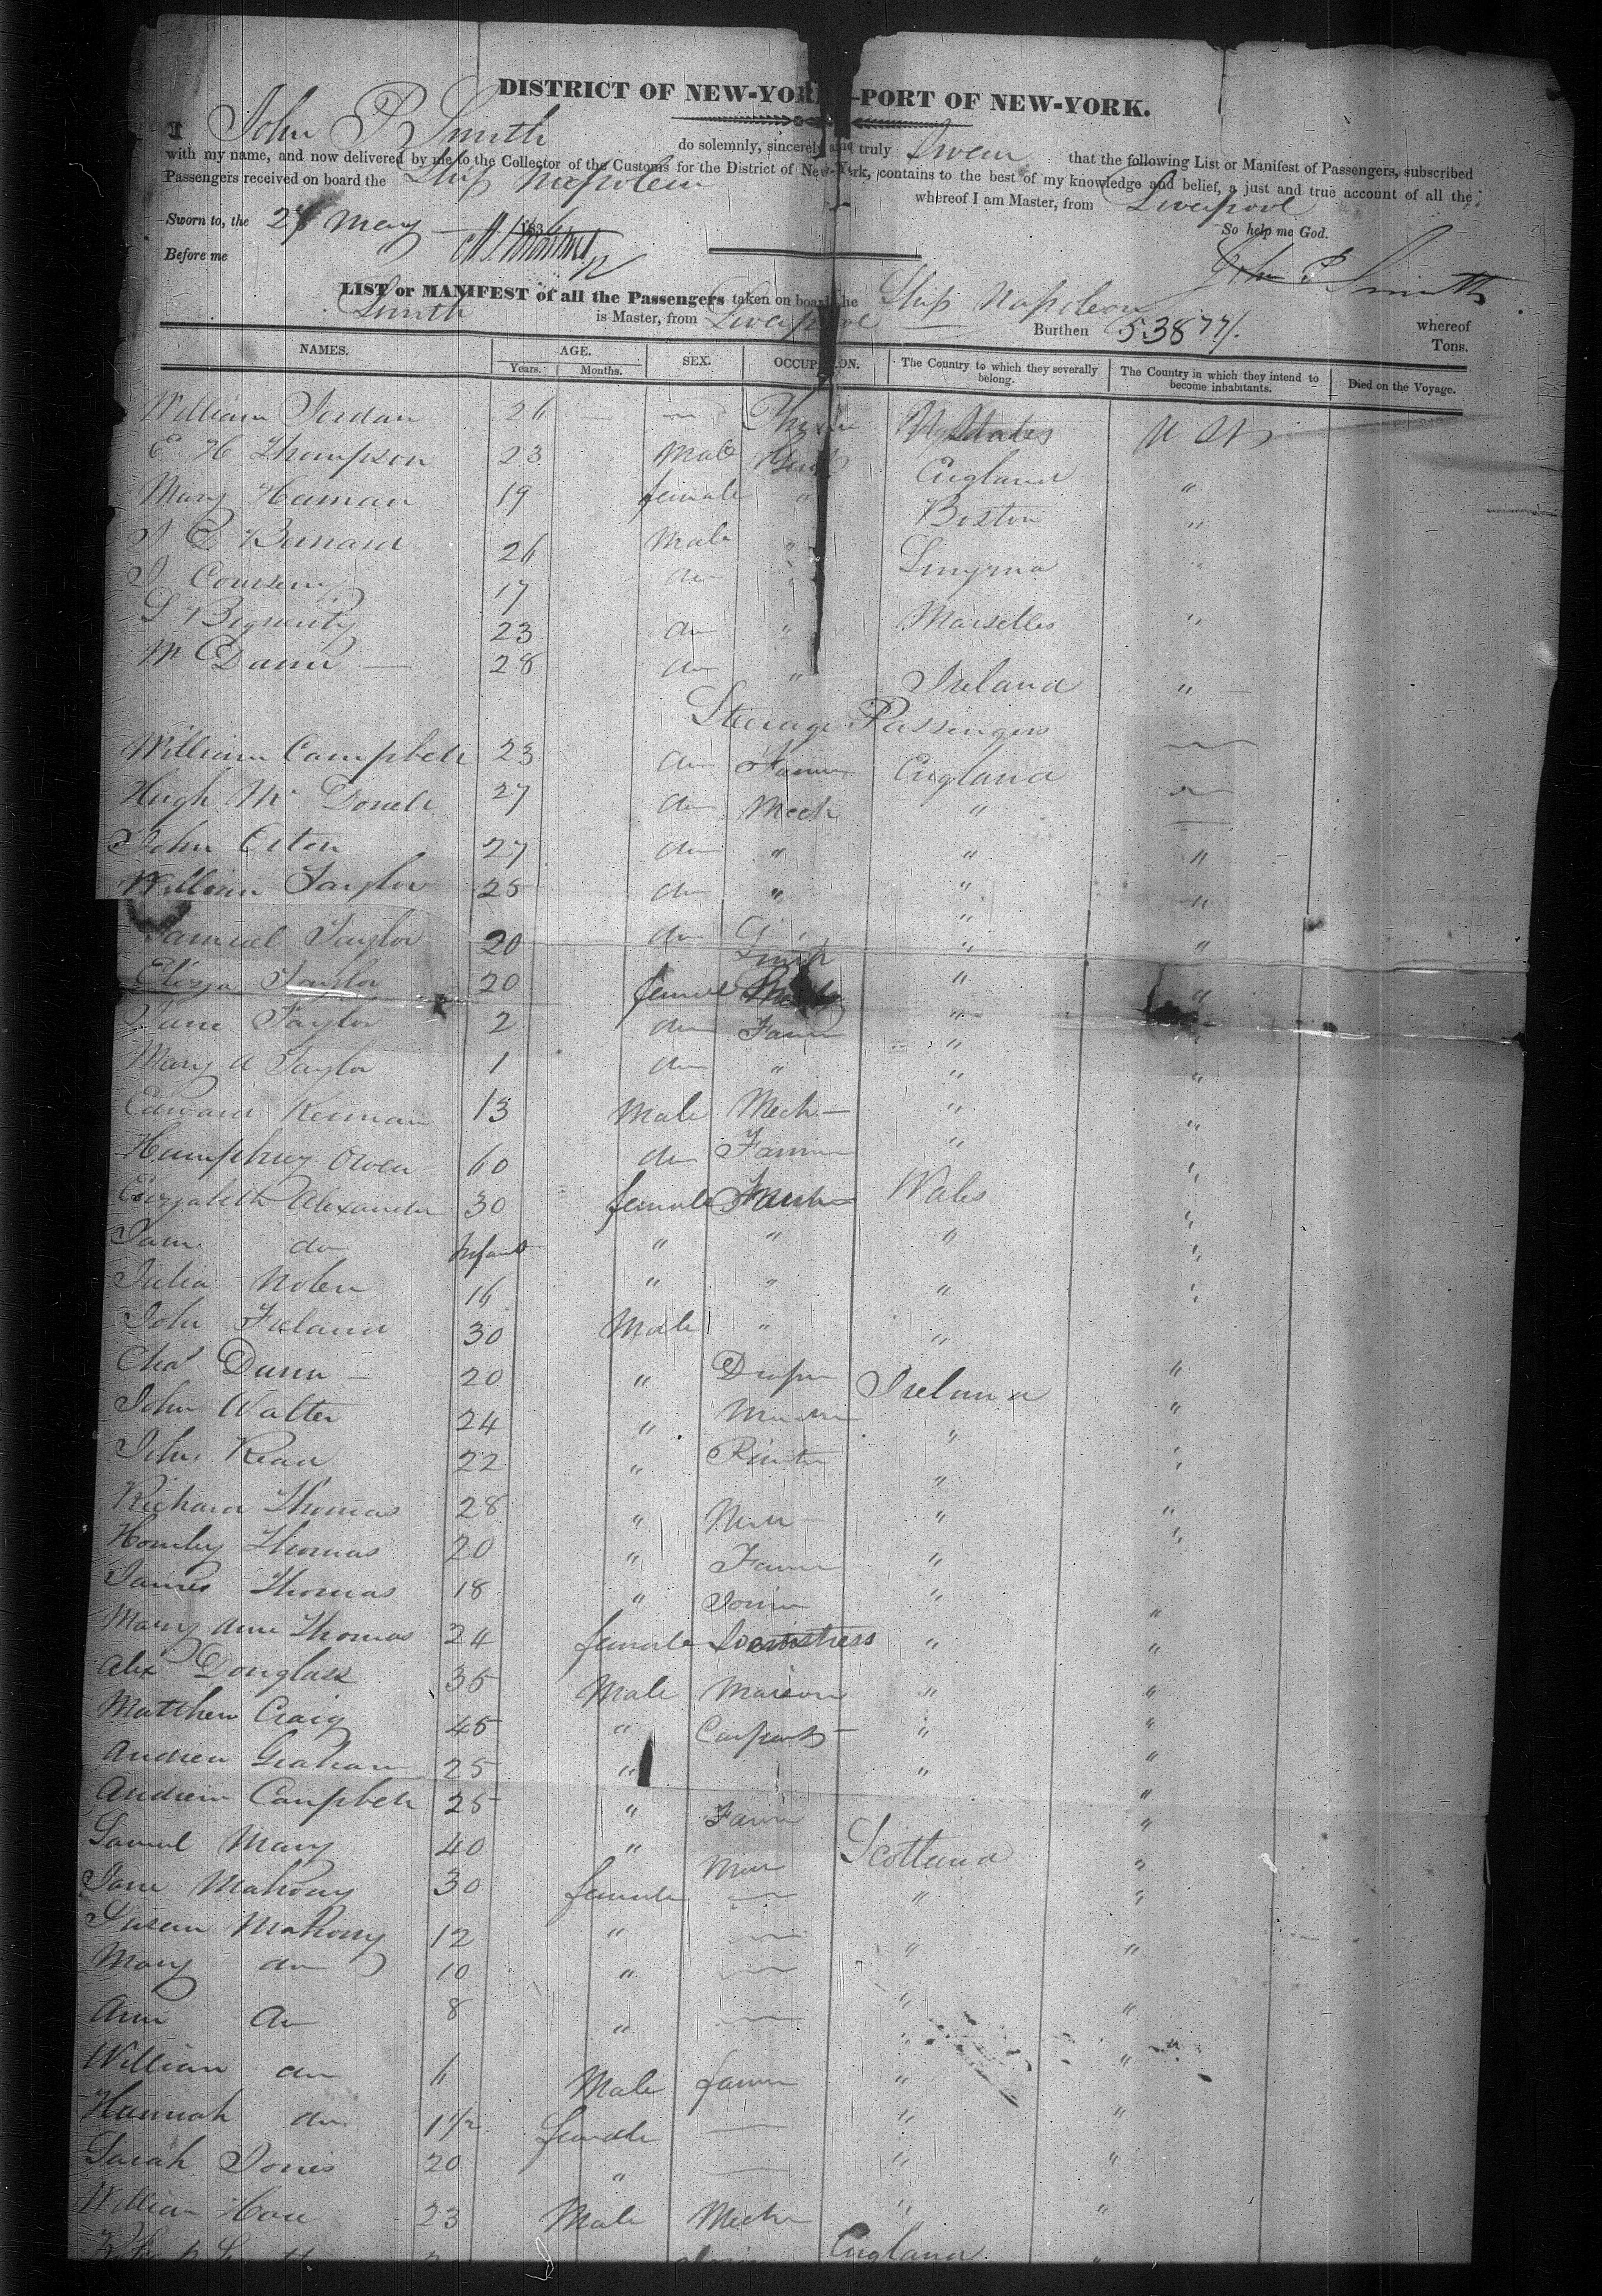 DISTRICT OF NEW-YORK—PORT OF NEW-YORK.
I John P Smith do solemnly, sincerely and truly Swear that the following List or Manifest of Passengers, subscribed
with my name, and now delivered by me to the Collector of the Customs for the District of New-York, contains to the best of my knowledge and belief, a just and true account of all the
Passengers received on board the Ship Napoleon whereof I am Master, from Liverpool
Sworn to, the May 183 So help me God.
Before me John P Smith
LIST or MANIFEST of all the Passengers taken on board the Ship Napoleon whereof
Smith is Master, from Liverpool Burthen 538 77/. Tons.
NAMES. AGE. SEX. OCCUPATION. The Country to which they severally belong. The Country in which they intend to become inhabitants. Died on the Voyage.
Years. Months.
William Jordan 26 — U States U St
E H Thompson 23 Male England "
Mary Haman 19 female " Boston "
Male " Smyrna "
J 17 do "
L 23 do " Marselles "
28 do " Ireland "
Steerage Passengers
William Campbell 23 do Farmer England
Hugh Mc Donell 27 do Mech "
John Orton 27 do " " "
William Taylor 25 do " " "
Samuel Taylor 20 do " "
Eliza Taylor 20 female " "
Jane Taylor 2 do Farmer " "
Mary A Taylor 1 do " " "
Edward Kernan 13 Male Mech — " "
Humphrey Owen 60 do Farmer " "
Elizabeth Alexander 30 female Wales "
Jane do Infant " " " "
Julia Nolen 16 " " " "
John Ireland 30 Male " "
Chas Dunn — 20 " Draper Ireland "
John Walter 24 " " "
John Read 22 " " "
Richard Thomas 28 " " "
Thomas 20 " Farmer " "
James Thomas 18 " Joiner "
Mary Ann Thomas 24 female " "
Alex Douglass 35 Male Mason " "
Matthew Craig 45 " " "
Andrew Graham 25 " " "
Andrew Campbell 25 " Farmer "
Samuel Mary 40 " Scotland "
Jane Mahony 30 female " "
Susan Mahony 12 " " "
Mary do 10 " " "
Ann do 8 " " "
William do 6 Male farmer " "
Hannah do 1 1/2 female — " "
Sarah Jones 20 " — " "
William 23 Male Mech "
England "